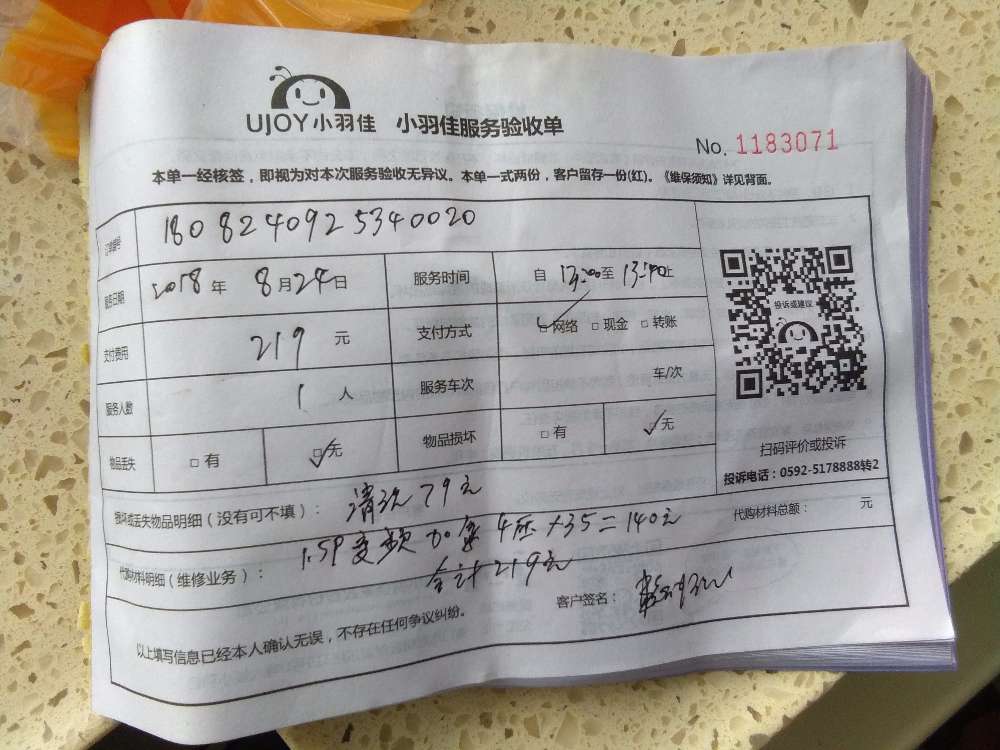 UJOY小羽佳 小羽佳服务验收单
No. 1183071
本单一经核签，即视为对本次服务验收无异议。本单一式两份，客户留存一份(红)。《维保须知》详见背面。
订单编号 1808240925340020
服务日期 2018年8月24日 服务时间 自13:00至13:40止
支付费用 219元 支付方式 ☑网络 □现金 □转账
服务人数 1人 服务车次 车/次
物品丢失 □有 ☑无 物品损坏 □有 ☑无
投诉或建议
扫码评价或投诉
投诉电话：0592-5178888转2
损坏或丢失物品明细（没有可不填）： 清洗79元
代购材料明细（维修业务）： 1.5P变频加氟4压×35=140元
合计219元
代购材料总额： 元
客户签名：
以上填写信息已经本人确认无误，不存在任何争议纠纷。